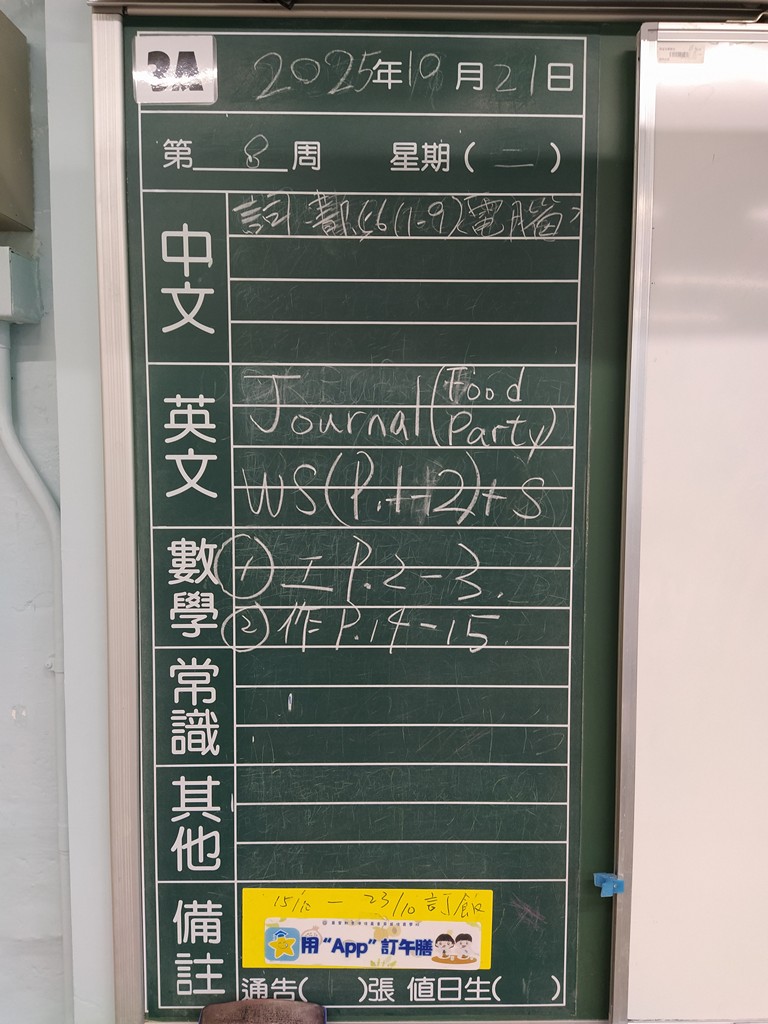 3A
2025年10月21日
第 8 周 星期(二)
中文
詞 L6(1-9)電腦
英文
Journal(Food Party)
WS(P.1-2)+S
數學
① 工 P.2-3.
② 作 P.14-15.
常識
其他
備註
15/10 — 23/10 訂飯
用“App”訂午膳
通告( )張 值日生( )